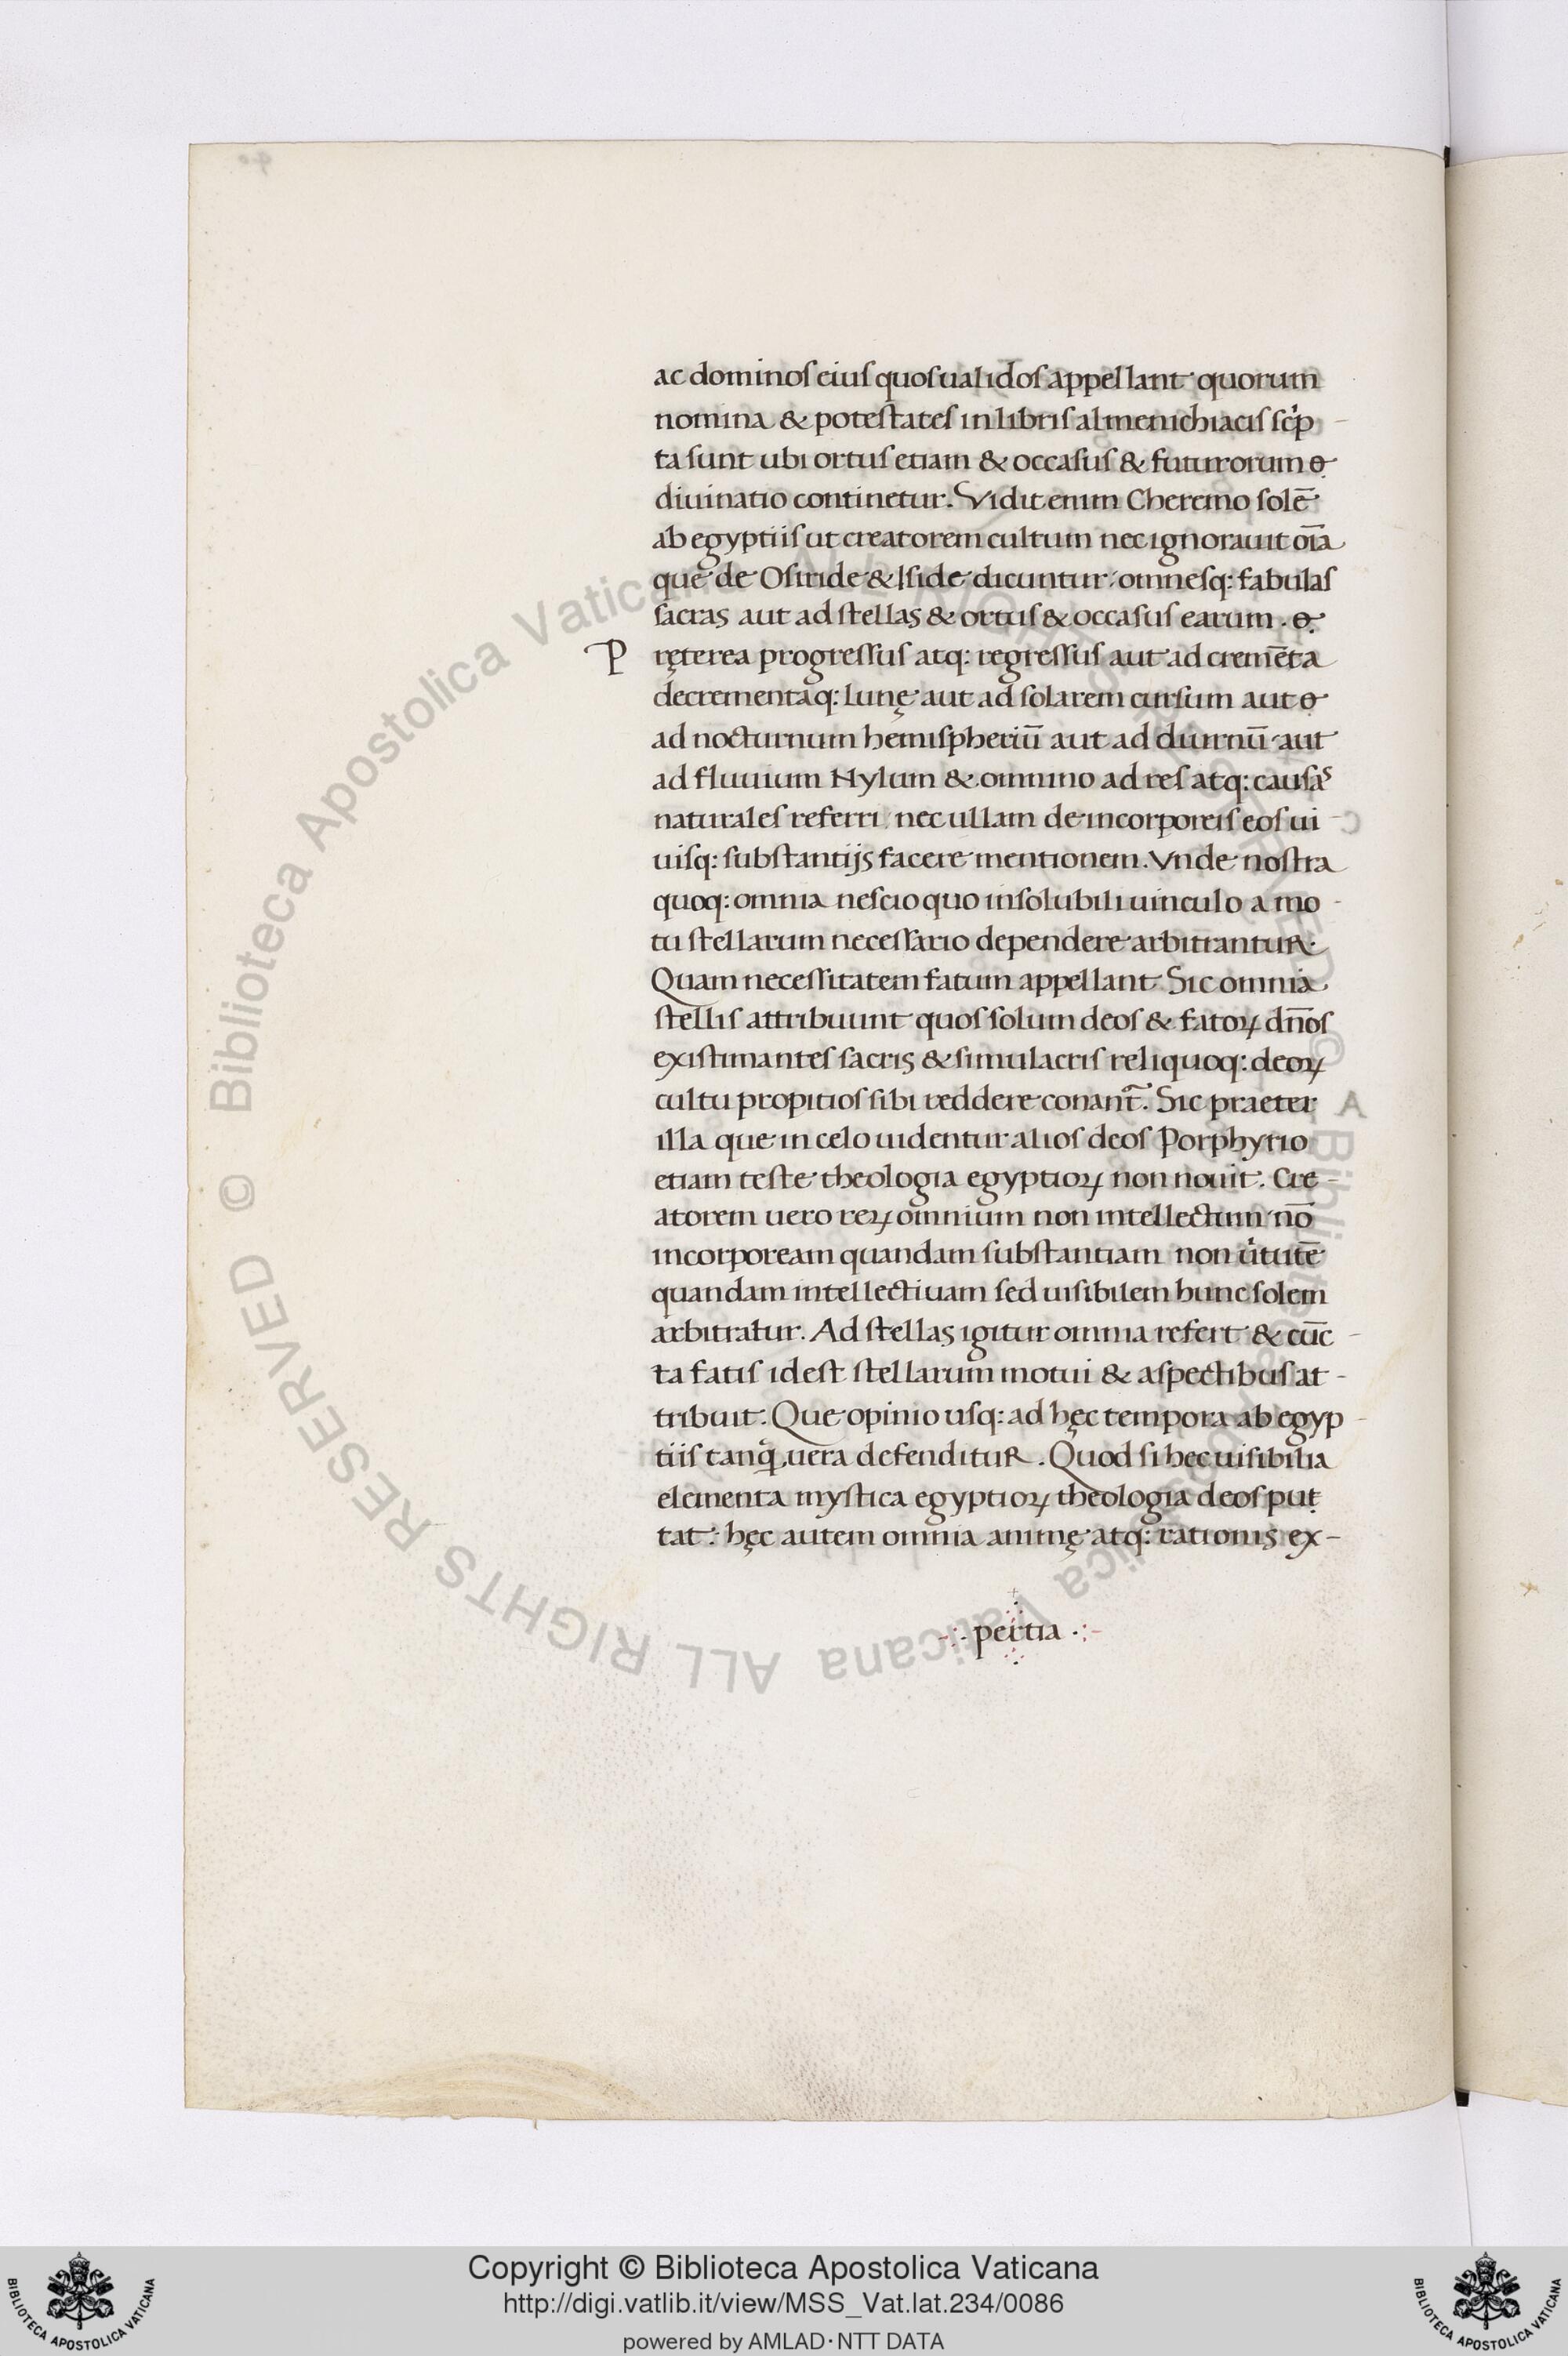 ac dominos eius quos ualidos appellant quorum
nomina & potestates in libris almenichiacis sc̓p -
ta sunt ubi ortus etiam & occasus & futurorum ө
diuinatio continetur. Vidit enim Cheremo solē
ab egyptiis ut creatorem cultum nec ignorauit oīa
que de Osiride & Iside dicuntur omnesq: fabulas
sacras aut ad stellas & ortus & occasus earum. ө
P ręterea progressus atq: regressus aut ad cremēta
decrementaq: lunę aut ad solarem cursum aut ө
ad nocturnum hemispheriū aut ad diurnū aut
ad fluuium Nylum & omnino ad res atq: causas
naturales referri nec ullam de incorporeis eos ui -
uisq: substantijs facere mentionem. Vnde nostra
quoq: omnia nescio quo insolubili uinculo a mo -
tu stellarum necessario dependere arbitrantur.
Quam necessitatem fatum appellant. Sic omnia
stellis attribuunt quos solum deos & fatoꝝ dn̄os
existimantes sacris & simulacris reliquoq: deoꝝ
cultu propitios sibi reddere conant̄. Sic praeter
illa que in celo uidentur alios deos Porphyrio
etiam teste theologia egyptioꝝ non nouit. Cre -
atorem uero reꝝ omnium non intellectum nō
incorpoream quandam substantiam non u̓tutē
quandam intellectiuam sed uisibilem hunc solem
arbitratur. Ad stellas igitur omnia refert & cūc -
ta fatis idest stellarum motui & aspectibus at -
tribuit. Que opinio usq: ad hęc tempora ab egyp -
tiis tanq̃ uera defenditur. Quod si hec uisibilia
elementa mystica egyptioꝝ theologia deos puṭ
tat. hęc autem omnia animę atq: rationis ex -
pertia
© Biblioteca Apostolica Vaticana ALL RIGHTS RESERVED © Biblioteca Apostolica Vaticana ALL RIGHTS RESERVED
Copyright © Biblioteca Apostolica Vaticana
http://digi.vatlib.it/view/MSS_Vat.lat.234/0086
powered by AMLAD·NTT DATA
BIBLIOTECA APOSTOLICA VATICANA
BIBLIOTECA APOSTOLICA VATICANA